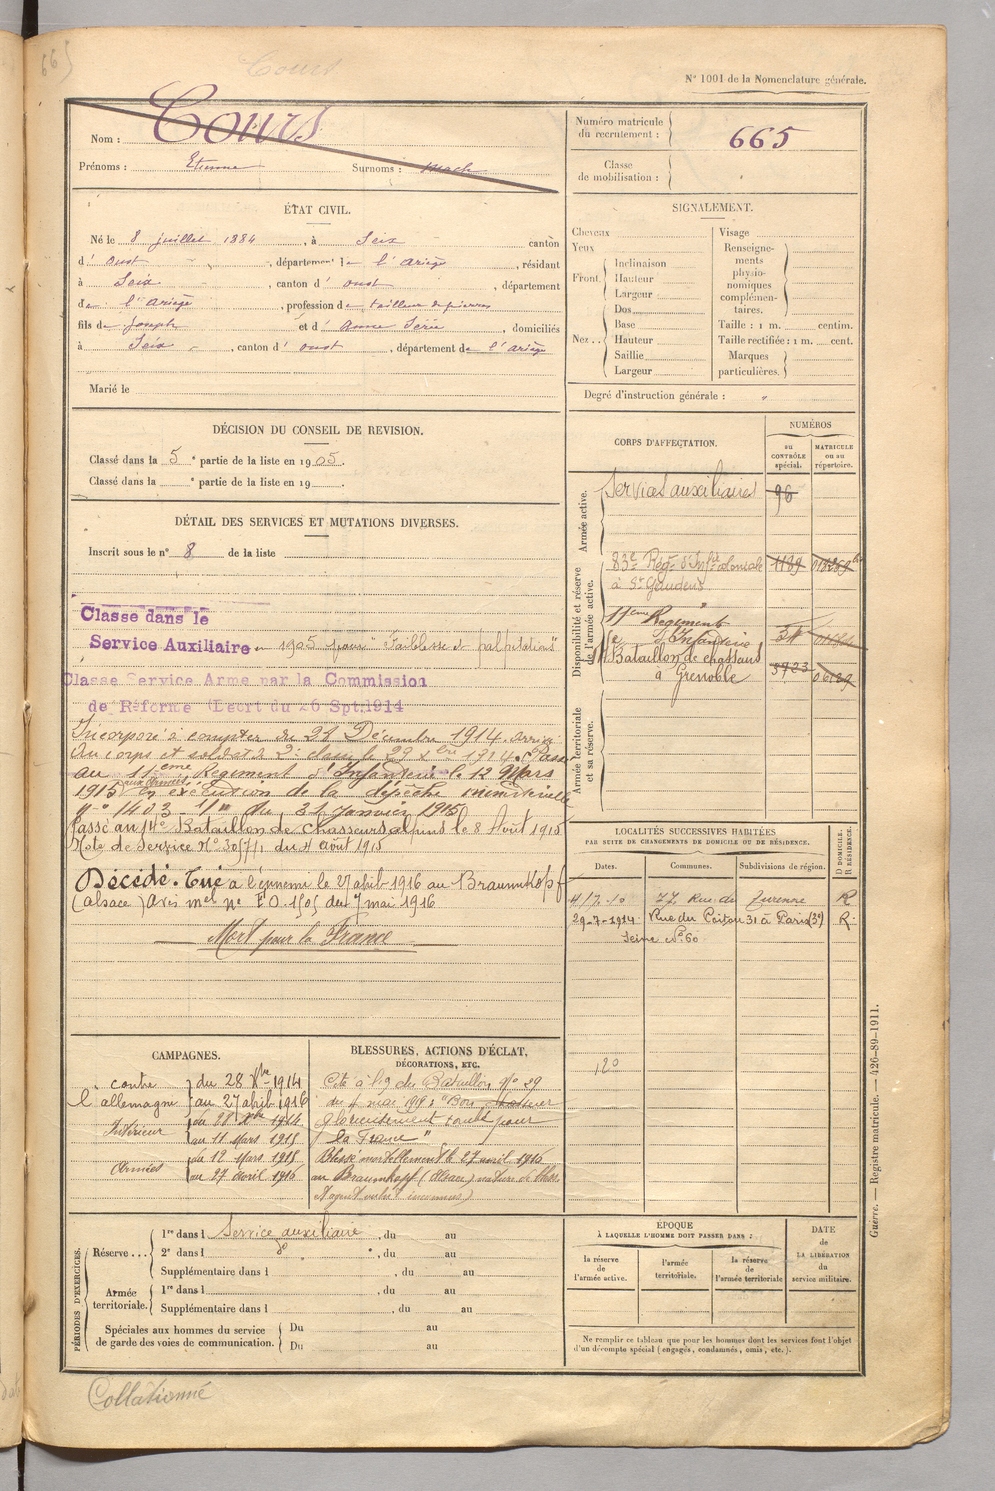 665
Cours
N° 1001 de la Nomenclature générale.
Nom : Cours
Prénoms : Etienne Surnoms :
Numéro matricule du recrutement : 665
Classe de mobilisation :
ÉTAT CIVIL.
Né le 8 juillet 1884, à Seix canton
d' oust, département de l'ariège, résidant
à Seix, canton d' oust, département
de l'ariège, profession de tailleur de pierres
fils de Joseph et d' Anne Série, domiciliés
à Seix, canton d' oust, département de l'ariège
Marié le
SIGNALEMENT.
Cheveux
Yeux
Front
Inclinaison
Hauteur
Largeur
Nez
Dos
Base
Hauteur
Saillie
Largeur
Visage
Renseignements physionomiques complémentaires.
Taille : 1 m. centim.
Taille rectifiée : 1 m. cent.
Marques particulières.
Degré d'instruction générale : "
DÉCISION DU CONSEIL DE REVISION.
Classé dans la 5e partie de la liste en 1905.
Classé dans la e partie de la liste en 19
DÉTAIL DES SERVICES ET MUTATIONS DIVERSES.
Inscrit sous le n° 8 de la liste
Classe dans le
Service Auxiliaire en 1905 pour "Faiblesse et palpitations"
Classe Service Arme par la Commission
de Réforme (Decrt du 26 Spt.1914
Incorporé à compter du 21 Décembre 1914. arrivé
au corps et soldat de 2e classe le 1914. Passé
au 11eme Régiment d'Infanterie le 12 Mars
1915 aux Armées en exécution de la dépêche ministérielle
n° 1403 - 1/11 du 31 Janvier 1915
Passé au 14e Bataillon de Chasseurs alpins le 8 Août 1915
Note de Service N° du 4 août 1915
Décédé. Tué à l'ennemi le 27 abril 1916 au Braumkopf
(alsace) Avis mel n° F.O. 1505 du 7 mai 1916
Mort pour la France
CORPS D'AFFECTATION.
NUMÉROS
au CONTRÔLE spécial.
MATRICULE ou au répertoire.
Armée active.
Services auxiliaires 96
Disponibilité et réserve de l'armée active.
83e Régt d'Infie coloniale 1189
à St Gaudens
11eme Régiment
d'Infanterie
14e Bataillon de chasseurs
à Grenoble
Armée territoriale et sa réserve.
LOCALITÉS SUCCESSIVES HABITÉES
PAR SUITE DE CHANGEMENTS DE DOMICILE OU DE RÉSIDENCE.
Dates. Communes. Subdivisions de région. D DOMICILE. R RÉSIDENCE.
77 Rue de Turenne R
29-7-1914 Rue du Poitou 31 à Paris (3e) R
Seine
120
CAMPAGNES.
contre l'allemagne du 28 Xbre 1914
au 27 abril 1916
Intérieur
au 11 Mars 1915
Armées du 12 Mars 1915
au 27 avril 1916
BLESSURES, ACTIONS D'ÉCLAT, DÉCORATIONS, ETC.
Cité à l'O du Bataillon N° 29
du 4 mai 1916 : "Bon chasseur
glorieusement tombé pour
la France"
Blessé mortellement le 27 avril 1916
au Braumkopf (Alsace) nature de bless.
et agent vulnt inconnus)
PÉRIODES D'EXERCICES.
Réserve
1re dans l Service auxiliaire, du au
2e dans l do, du au
Supplémentaire dans l, du au
Armée territoriale.
1re dans l, du au
Supplémentaire dans l, du au
Spéciales aux hommes du service de garde des voies de communication.
Du au
Du au
ÉPOQUE
À LAQUELLE L'HOMME DOIT PASSER DANS :
la réserve de l'armée active.
l'armée territoriale.
la réserve de l'armée territoriale
DATE de LA LIBÉRATION du service militaire.
Ne remplir ce tableau que pour les hommes dont les services font l'objet
d'un décompte spécial (engagés, condamnés, omis, etc.).
Guerre. — Registre matricule. — 426-89-1911.
Collationné